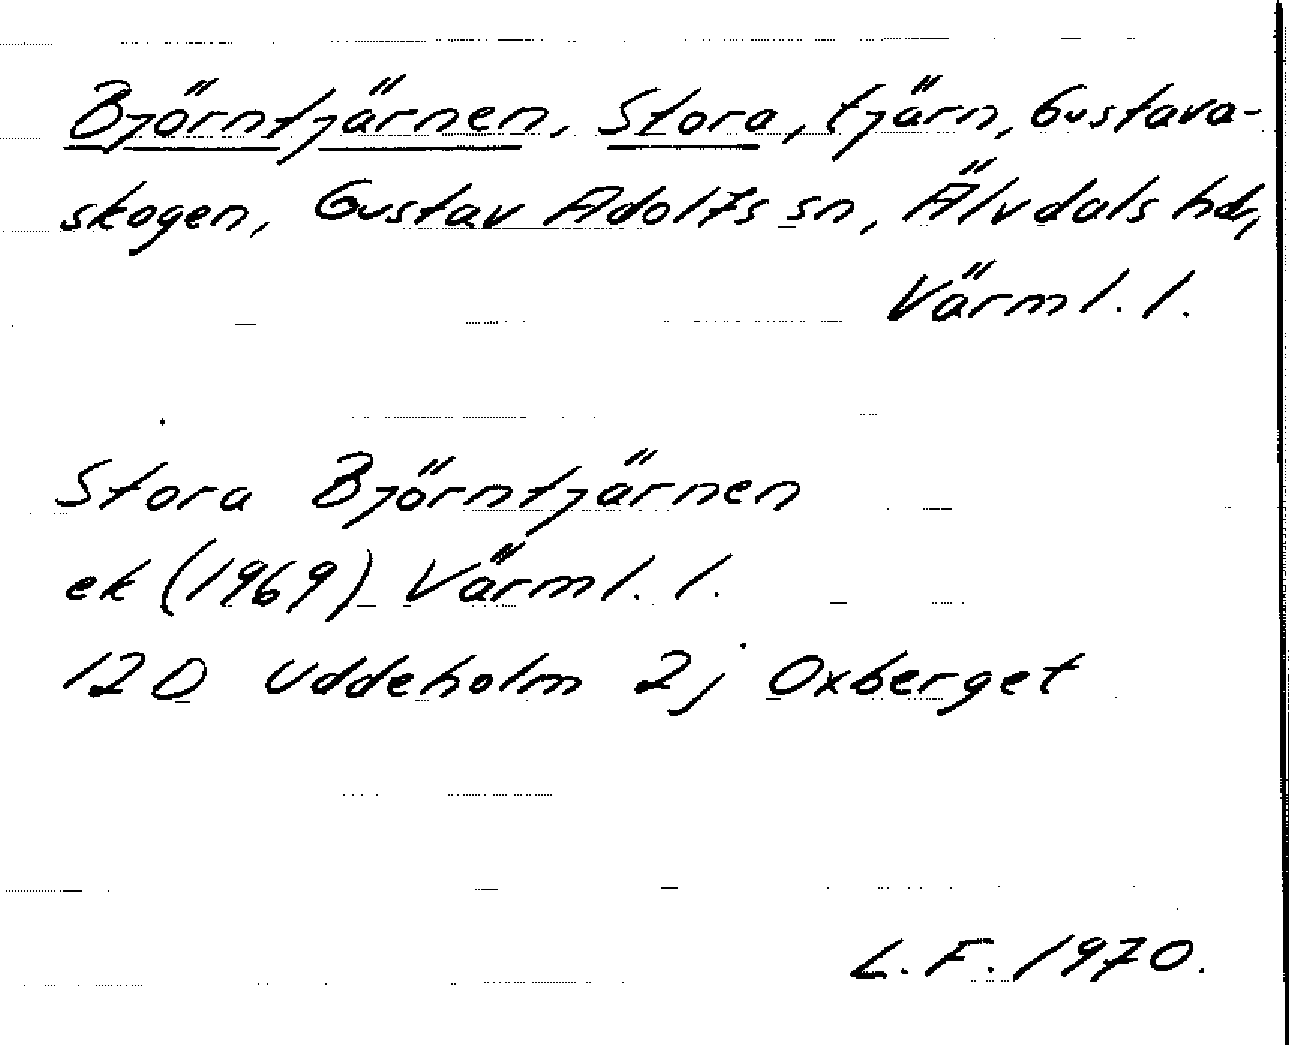 Björntjärnen, Stora, tjärn, Gustava-
skogen, Gustav Adolfs sn, Älvdals hd,
Värml. l.
Stora Björntjärnen
ek (1969) Värml. l.
12D Uddeholm 2j Oxberget
L. F. 1970.